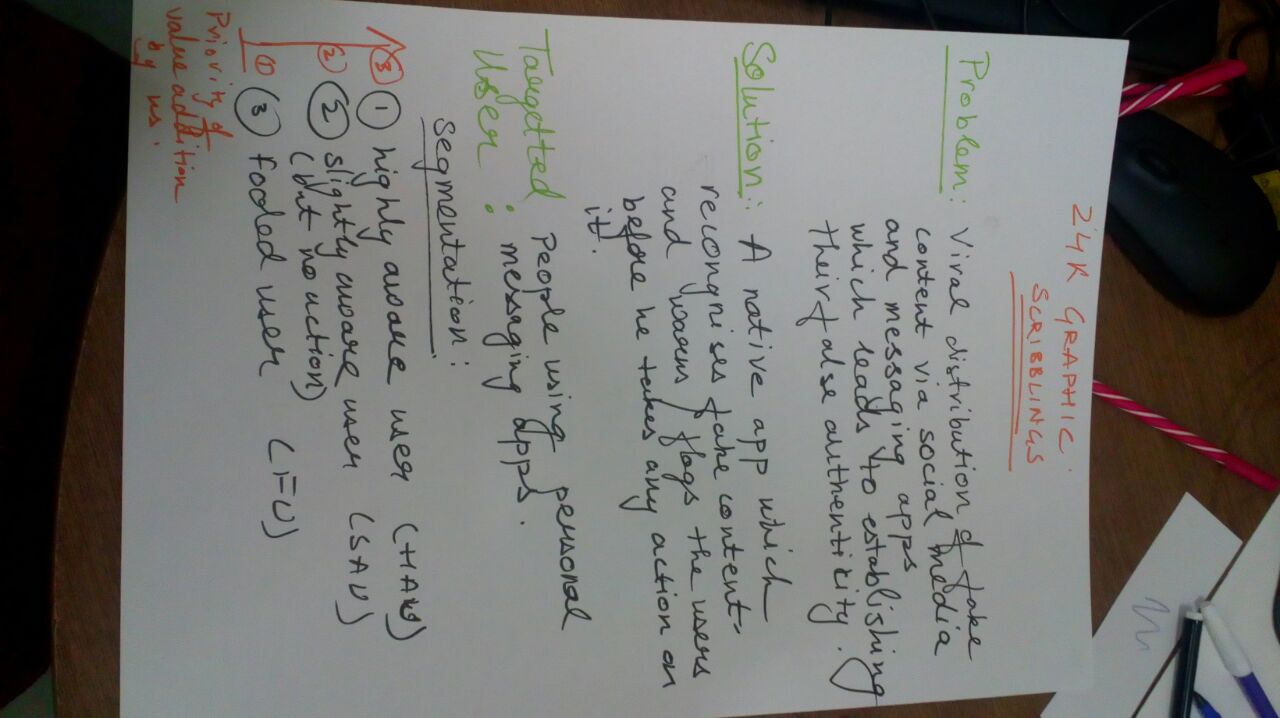 24K GRAPHIC
SCRIBBLINGS
Problem: Viral distribution of fake
content via social media
and messaging apps
which leads to establishing
their false authenticity.
Solution: A native app which
recongnises fake content
and warns / flags the users
before he takes any action on
it.
Targetted User: People using personal
messaging apps.
segmentation:
③ ① highly aware user (HAU)
② ② slightly aware user (SAU)
(but no action)
① ③ fooled user (FU)
Priority of
value addition
by us.